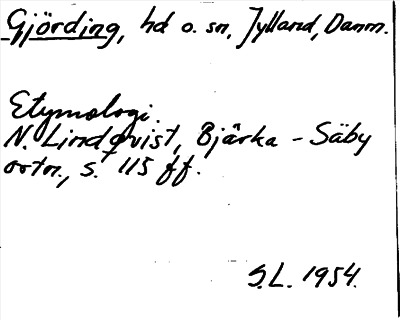 Gjörding, hd o. sn, Jylland, Danm.
Etymologi.
N. Lindqvist, Bjärka - Säby
ortn., s. 115 ff.
S.L. 1954.